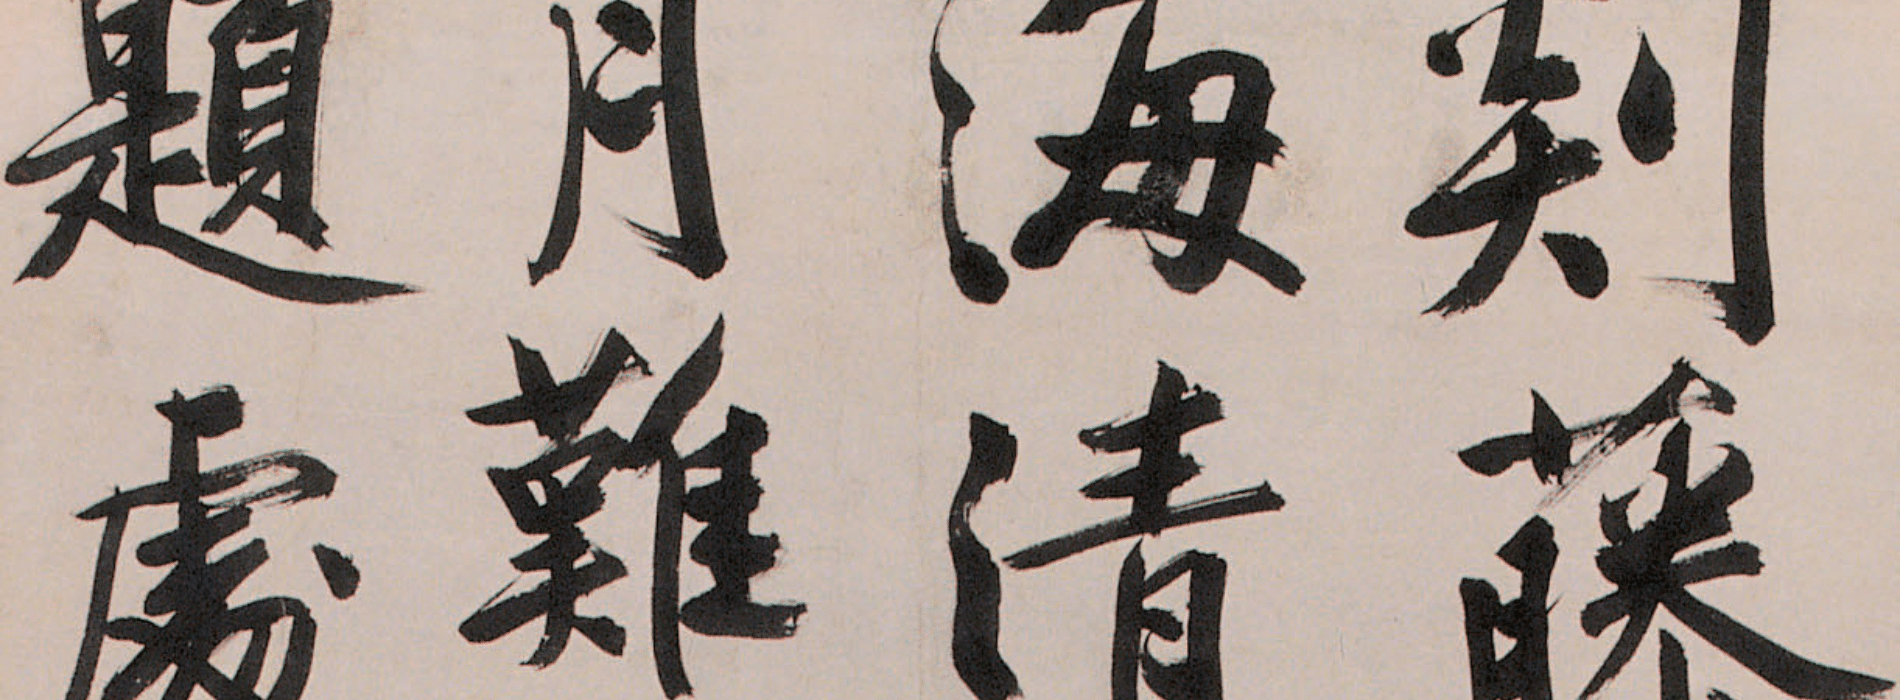 剡藤
海清
月難
題處